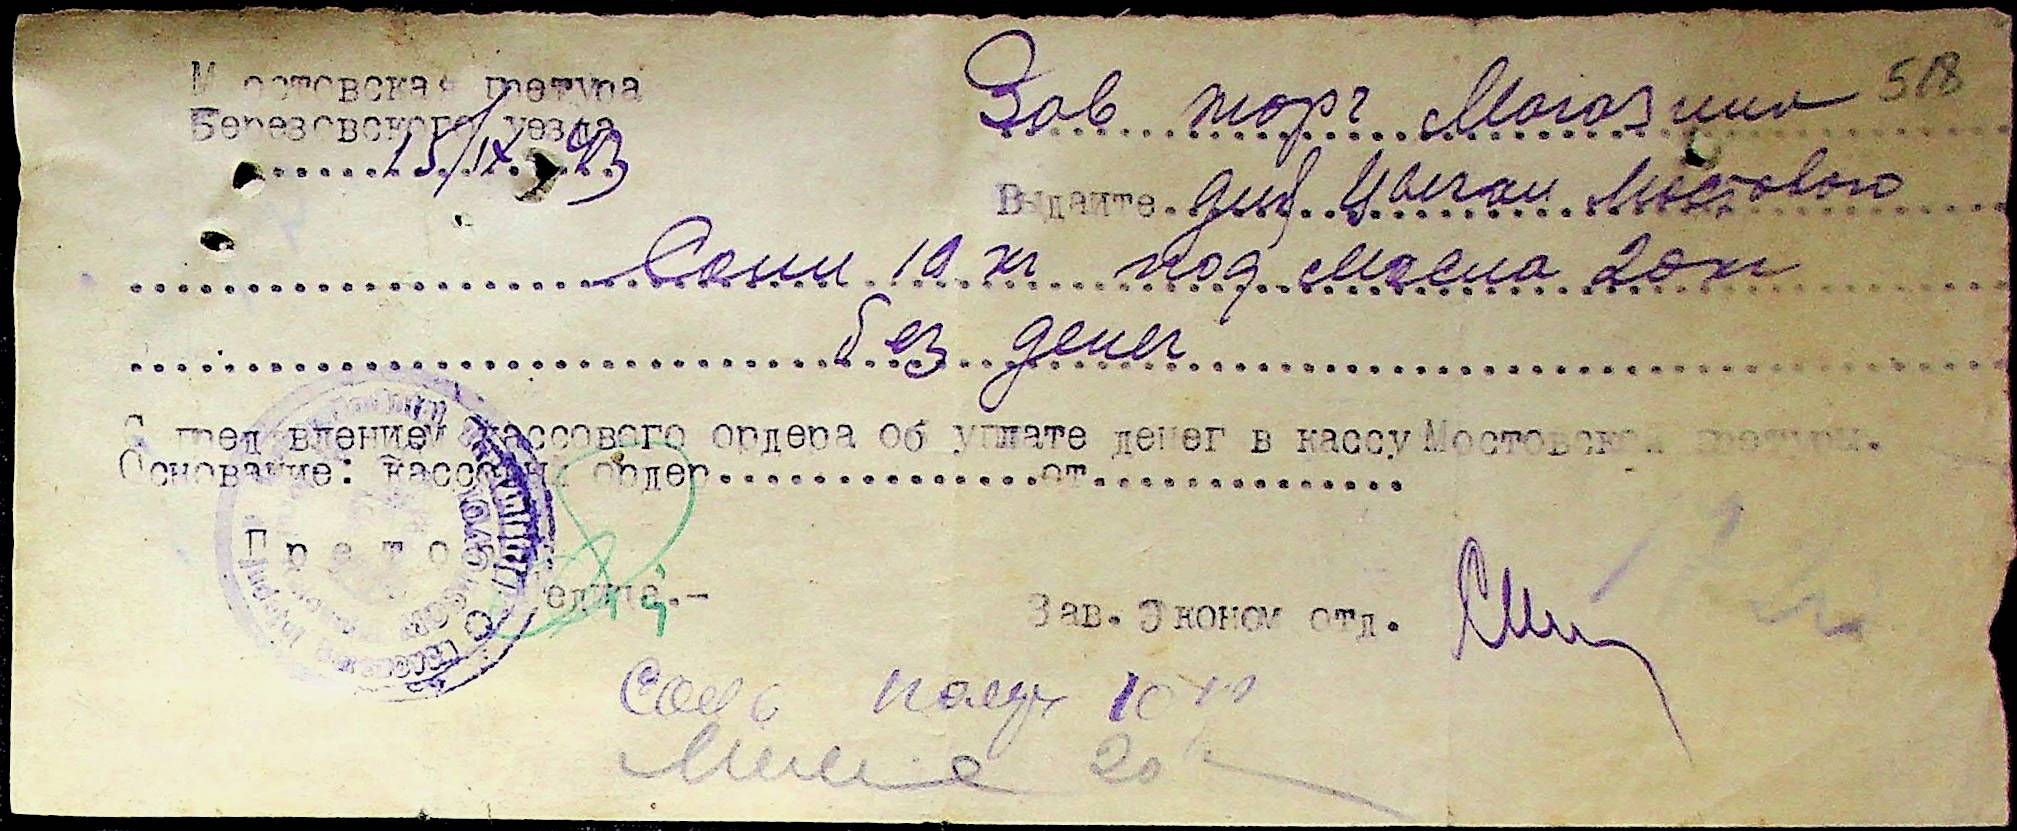 Мостовская претура
Березовского уезда
15/IX 43
518
Зав торг Магазина
Выдайте для Цыган Мостового
Соли 10 кг под Масла 20 кг
без денег
С пред влением кассового ордера об уплате денег в кассу Мостовской претуры.
Основание: кассовый ордер...............от...............
Претор
Зав. Эконом отд.
Соль 10 кг
20 к